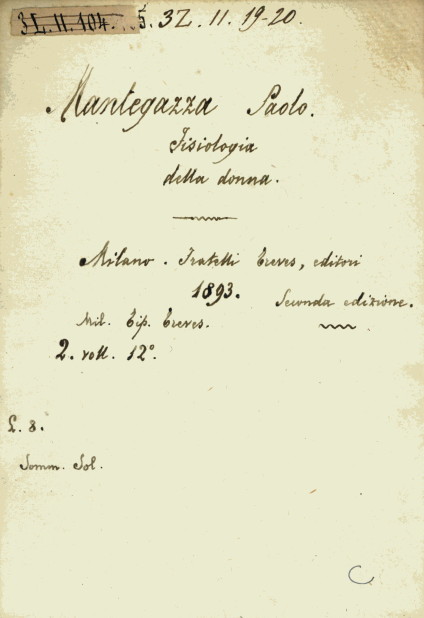 3L.11.104. 5. 3Z.11.19-20.
Mantegazza Paolo.
Fisiologia
della donna.
Milano. Fratelli Treves, editori
1893. Seconda edizione.
Mil. Tip. Treves.
2. voll. 12°.
L. 8.
Somm. Sol.
C